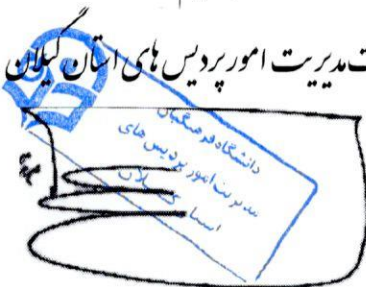 ت مدیریت امور پردیس های استان گیلان
دانشگاه فرهنگیان
مدیریت امور پردیس های
استان گیلان